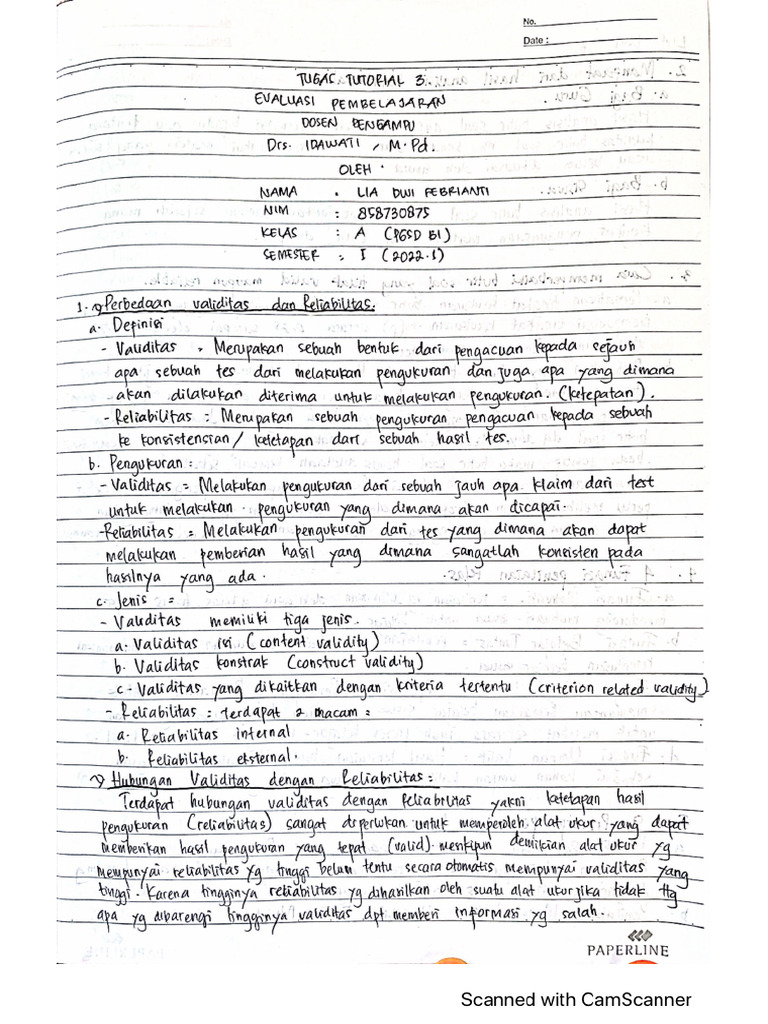 No.
Date :
TUGAS TUTORIAL 3
EVALUASI PEMBELAJARAN
DOSEN PENGAMPU
Drs. IDAWATI, M.Pd.
OLEH :
NAMA : LIA DWI FEBRIANTI
NIM : 858730875
KELAS : A (PGSD BI)
SEMESTER : I (2022.1)
1. Perbedaan validitas dan Reliabilitas.
a. Definisi
- Validitas = Merupakan sebuah bentuk dari pengacuan kepada sejauh
apa sebuah tes dari melakukan pengukuran dan juga apa yang dimana
akan dilakukan diterima untuk melakukan pengukuran. (ketepatan).
- Reliabilitas = Merupakan sebuah pengukuran pengacuan kepada sebuah
ke konsistensian / ketetapan dari sebuah hasil tes.
b. Pengukuran :
- Validitas = Melakukan pengukuran dari sebuah jauh apa klaim dari test
untuk melakukan pengukuran yang dimana akan dicapai.
- Reliabilitas = Melakukan pengukuran dari tes yang dimana akan dapat
melakukan pemberian hasil yang dimana sangatlah konsisten pada
hasilnya yang ada.
c. Jenis =
- Validitas memiliki tiga jenis.
a. Validitas isi (content validity)
b. Validitas konstrak (construct validity)
c. Validitas yang dikaitkan dengan kriteria tertentu (criterion related validity)
- Reliabilitas = Terdapat 2 macam =
a. Reliabilitas internal
b. Reliabilitas eksternal.
Hubungan Validitas dengan Reliabilitas :
Terdapat hubungan validitas dengan Reliabilitas yakni ketetapan hasil
pengukuran (reliabilitas) sangat diperlukan untuk memperoleh alat ukur yang dapat
memberikan hasil pengukuran yang tepat (valid) meskipun demikian alat ukur yg
mempunyai reliabilitas yg tinggi belum tentu secara otomatis mempunyai validitas yang
tinggi. Karena tingginya reliabilitas yg dihasilkan oleh suatu alat ukur jika tidak ttg
apa yg dibarengi tingginya validitas dpt memberi informasi yg salah.
PAPERLINE
Scanned with CamScanner